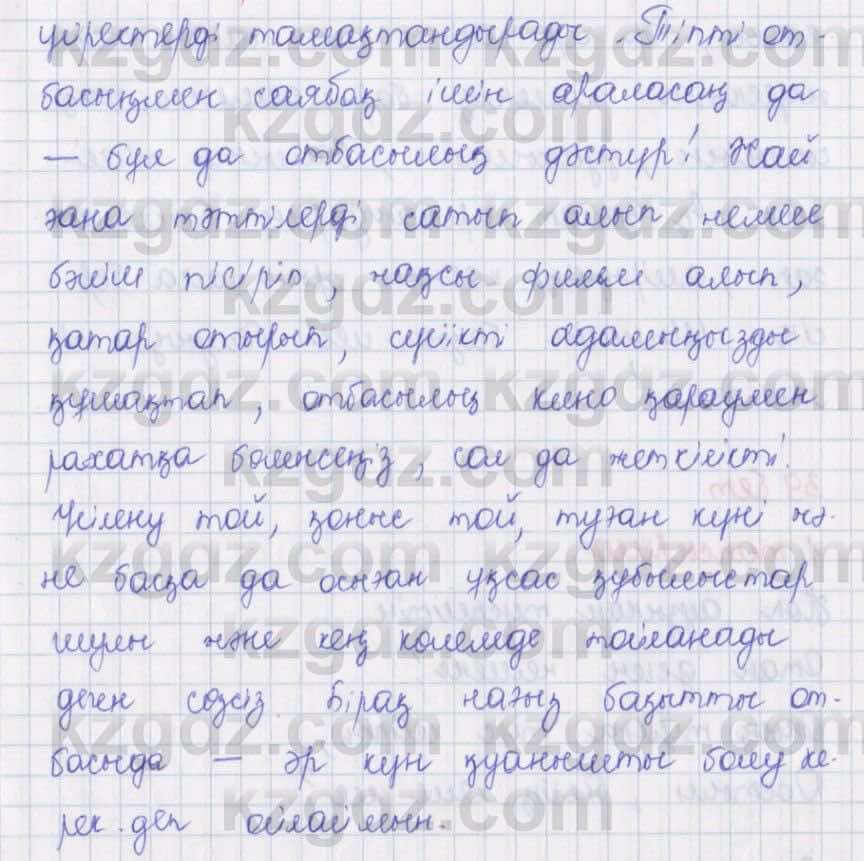 үйректерді тамақтандырады. Тіпті от-
басыңмен саябақ ішін араласаң да
— бұл да отбасылық дәстүр! Жай
ғана тәттілерді сатып алып немесе
бәліш пісіріп, жақсы фильм алып,
қатар отырып, сүйікті адамыңызды
құшақтап, отбасылық кино қараумен
рахатқа бөленсеңіз, сол да жеткілікті.
Үйлену той, қоныс той, туған күні жә-
не басқа да осыған ұқсас құбылыстар
шулы және кең көлемде тойланады
деген сөзсіз. Бірақ нағыз бақытты от-
басыда — әр күн қуанышты болу ке-
рек деп ойлаймын.
kzgdz.com